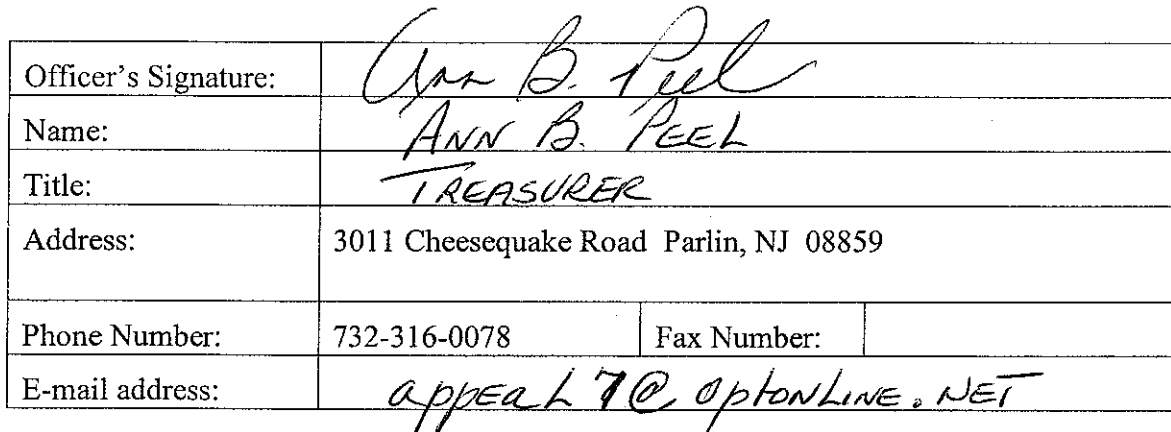 Officer's Signature: Ann B. Peel
Name: ANN B. PEEL
Title: TREASURER
Address: 3011 Cheesequake Road Parlin, NJ 08859
Phone Number: 732-316-0078 Fax Number:
E-mail address: appeaL7@optonLINE.NET